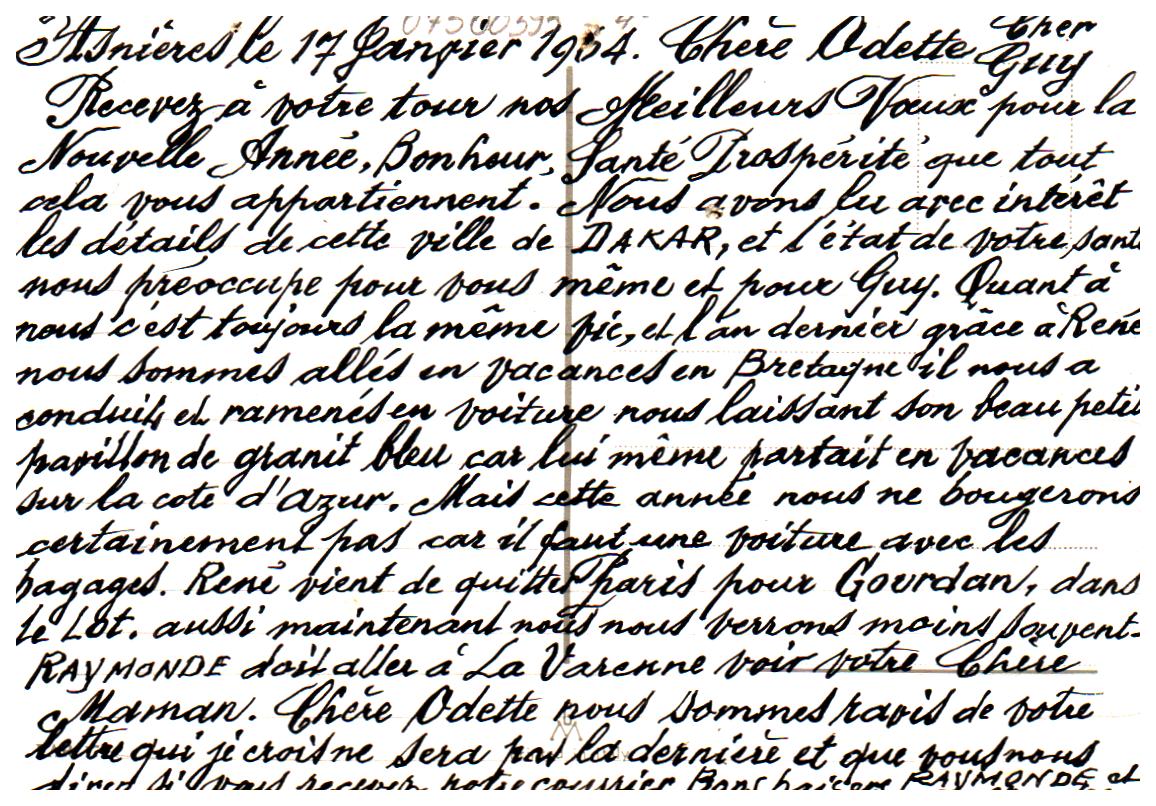 07560395
Asnières le 17 Janvier 1964. Chère Odette Cher
Guy
Recevez à votre tour nos Meilleurs Vœux pour la
Nouvelle Année, Bonheur, Santé Prospérité que tout
cela vous appartiennent. Nous avons lu avec intérêt
les détails de cette ville de DAKAR, et l'état de votre santé
nous préoccupe pour vous même et pour Guy. Quant à
nous c'est toujours la même vie, et l'an dernier grâce à René
nous sommes allés en vacances en Bretagne il nous a
conduits et ramenés en voiture nous laissant son beau petit
pavillon de granit bleu car lui même partait en vacances
sur la cote d'azur. Mais cette année nous ne bougerons
certainement pas car il faut une voiture avec les
bagages. René vient de quitter Paris pour Gourdan, dans
le Lot. aussi maintenant nous nous verrons moins souvent-
RAYMONDE doit aller à La Varenne voir votre Chère
Maman. Chère Odette nous sommes ravis de votre
lettre qui je crois ne sera pas la dernière et que vous nous
direz si vous recevez notre courrier RAYMONDE et